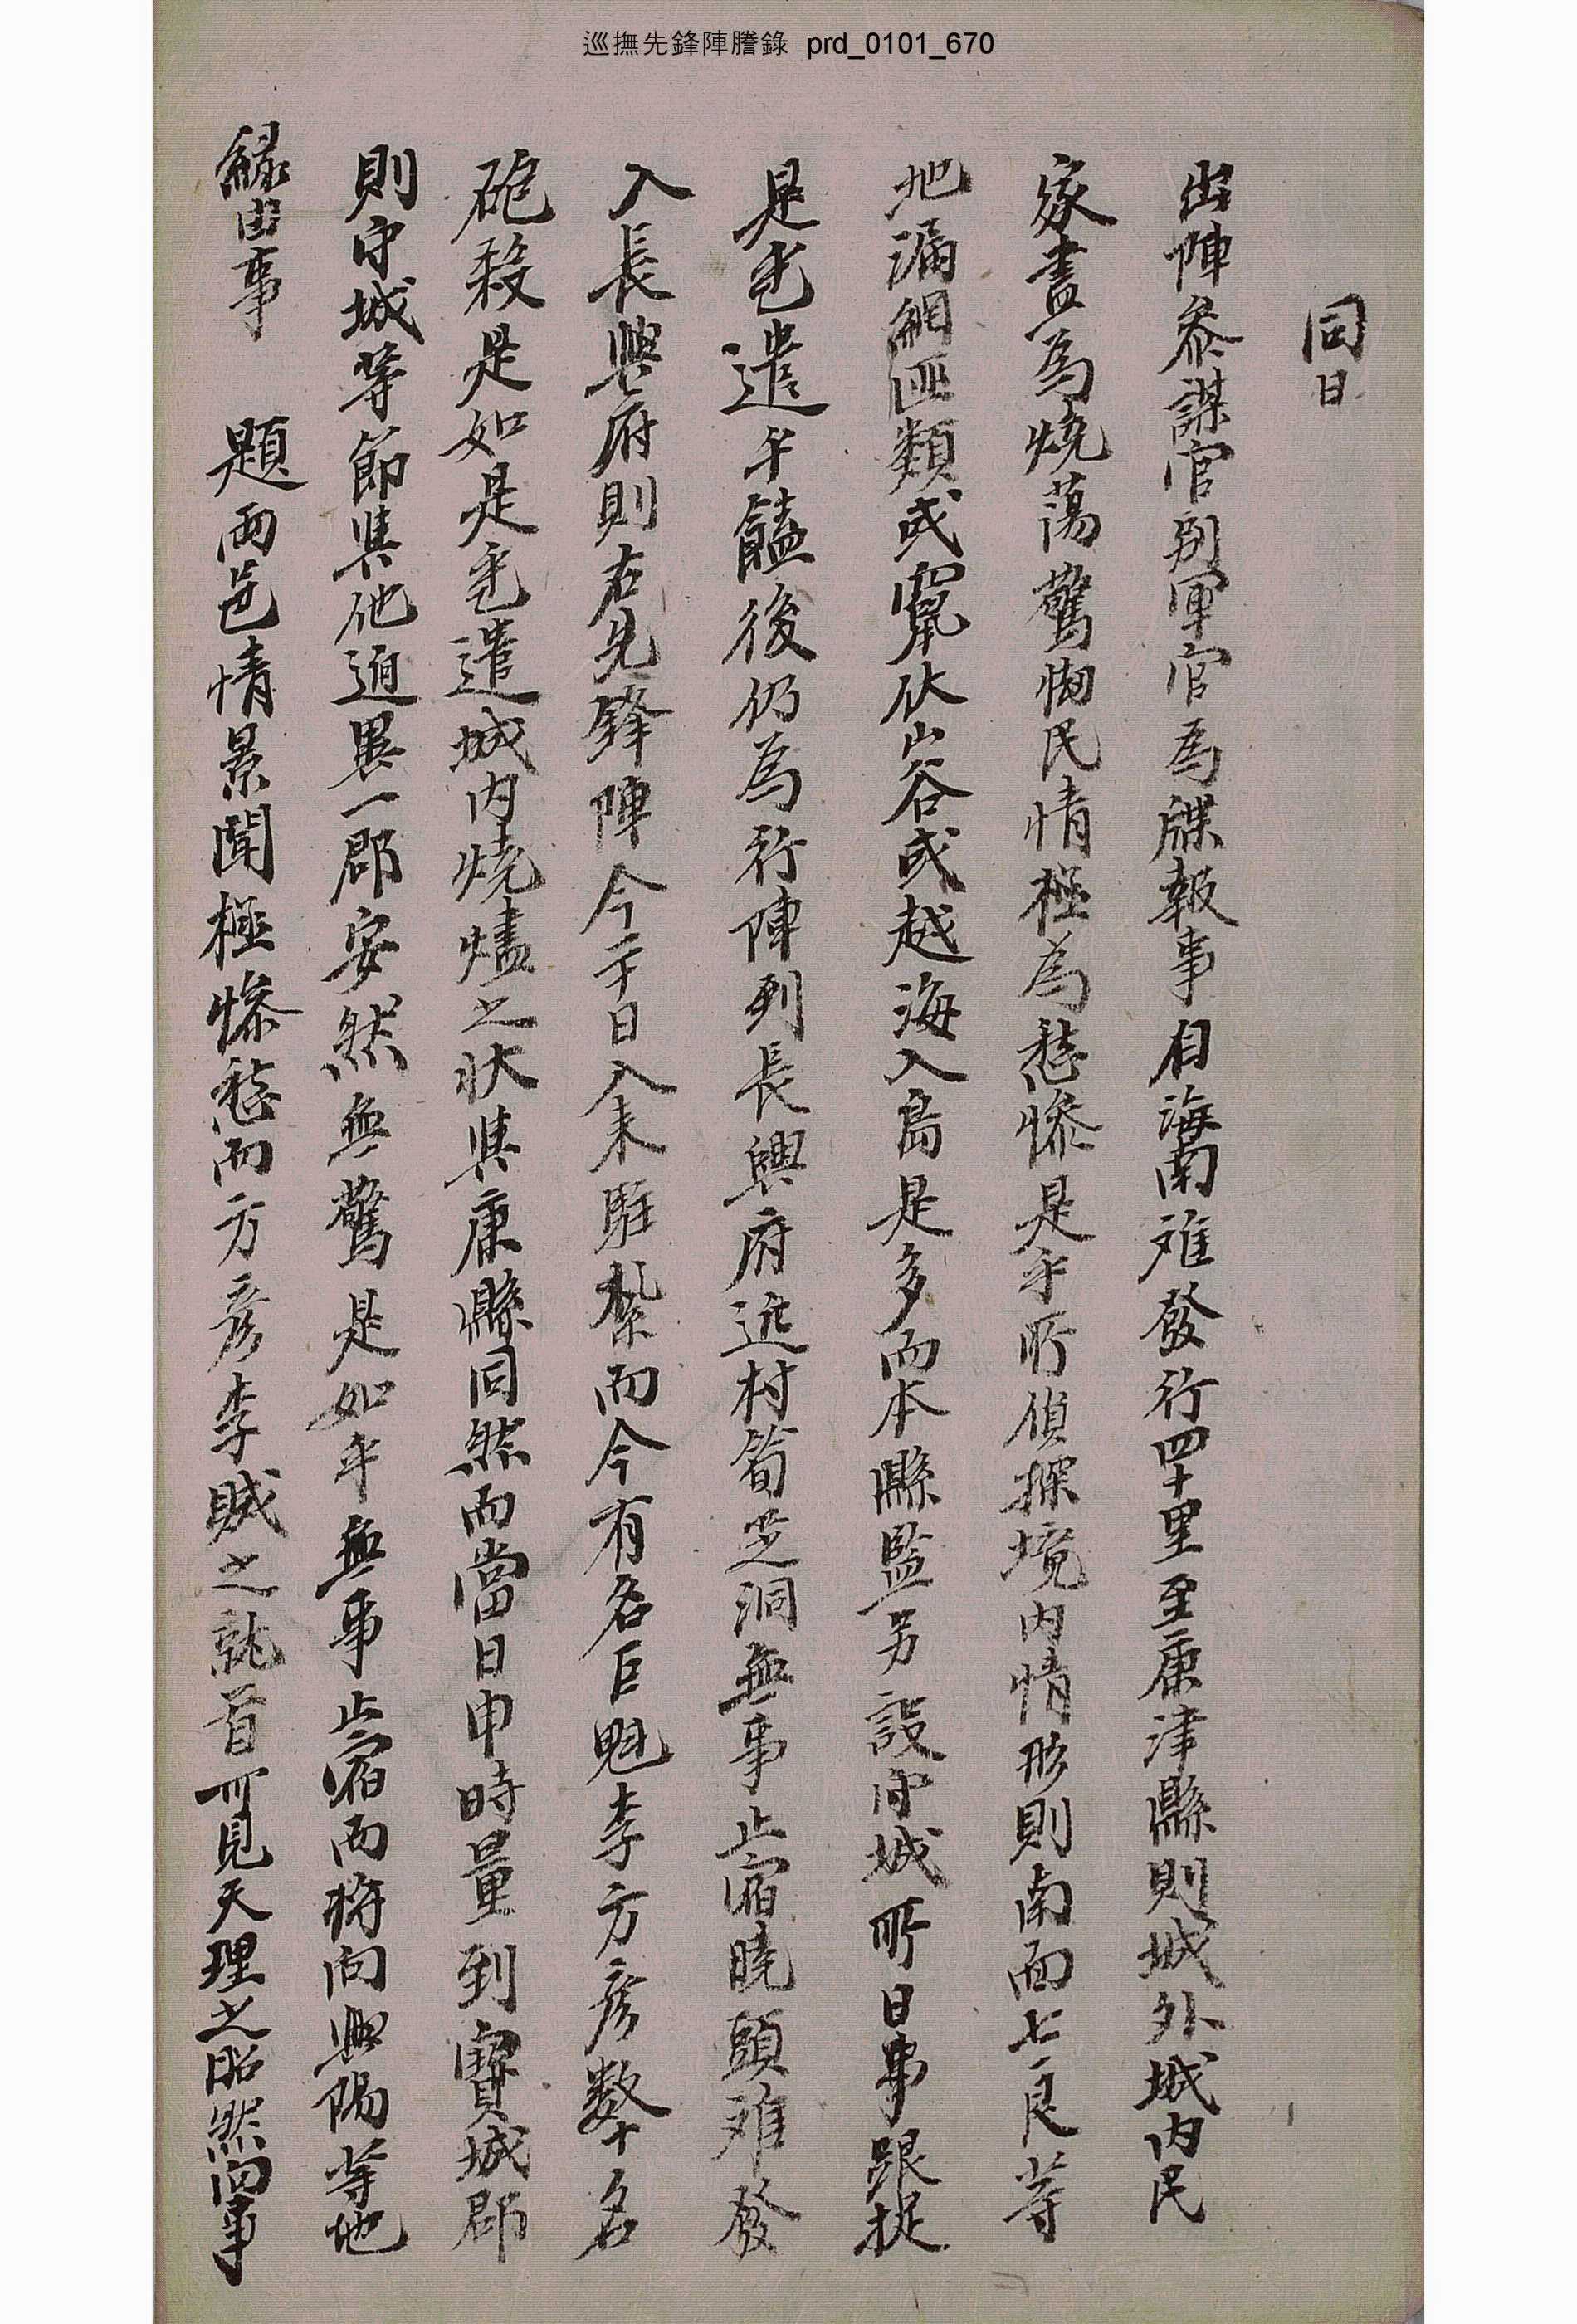 巡撫先鋒陣謄錄 prd_0101_670
同日
出陣參謀官別軍官爲牒報事自海南離發行四十里至康津縣則城外城內民
家盡爲燒蕩驚惚民情極爲愁慘是乎所偵探境內情形則南面七良等
地漏網匪類或竄伏山谷或越海入島是多而本縣監另設守城所日事跟捉
是乎遣午饁後仍爲行陣到長興府近村筍芝洞無事止宿曉頭離發
入長興府則右先鋒陣今二十日入來駐紮而今有名巨魁李方彦數十名
砲殺是如是乎遣城內燒燼之狀與康縣同然而當日申時量到寶城郡
則守城等節與他逈異一郡安然無驚是如乎無事止宿而將向興陽等地
緣由事 題兩邑情景聞極慘愁而方彦李賊之就首可見天理之昭然向事